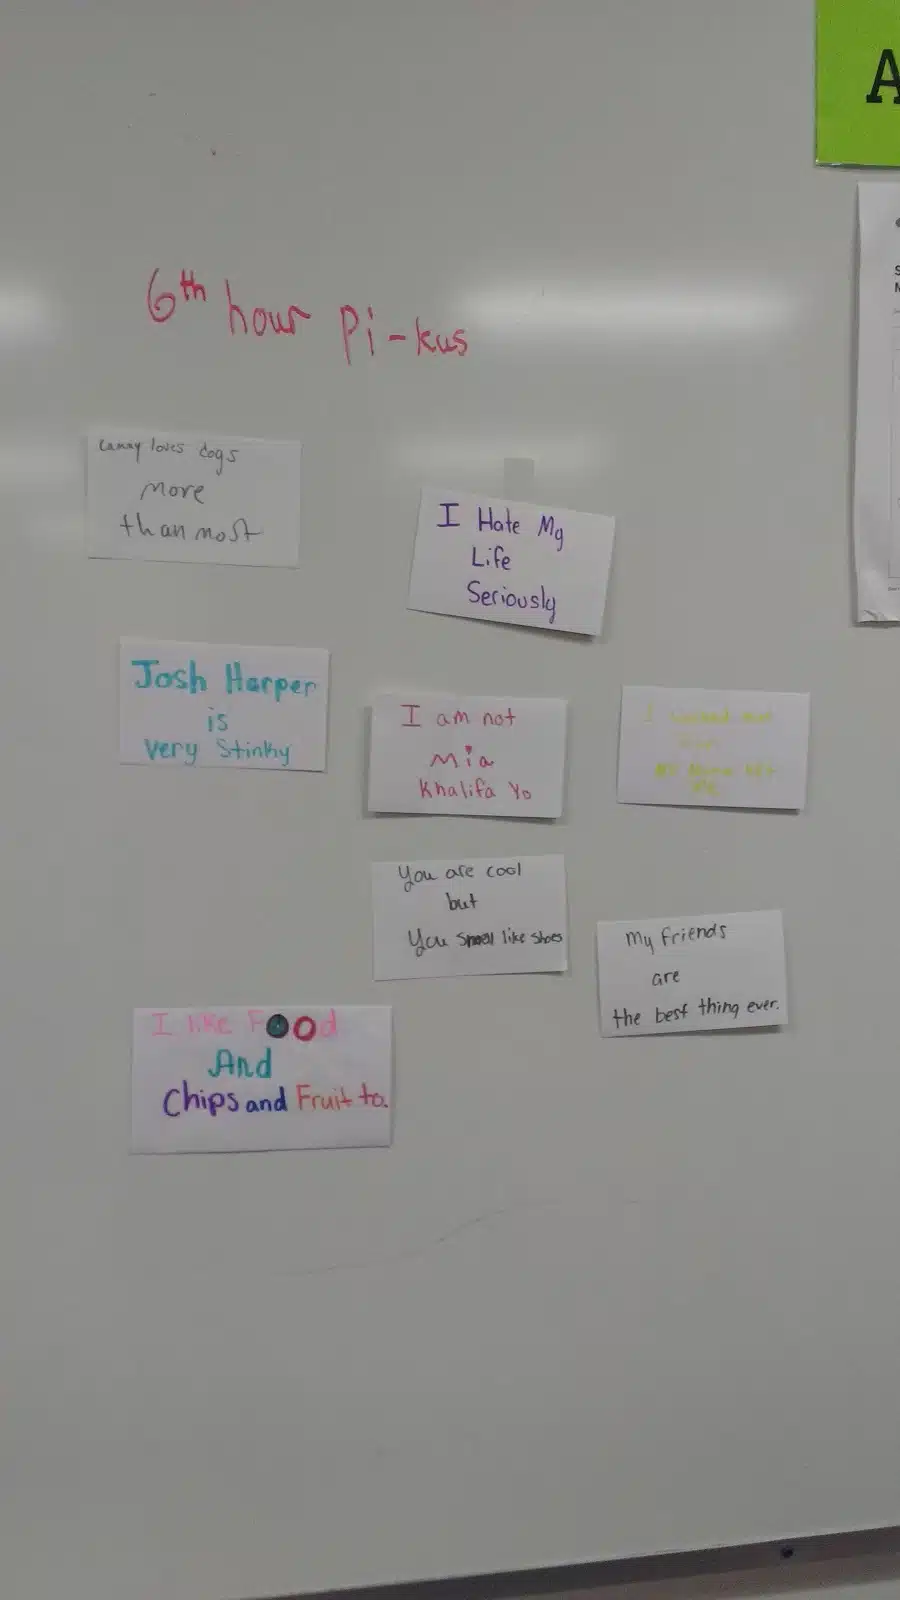 A
6th hour Pi-kus
loves dogs
more
than most
I Hate My
Life
Seriously
Josh Harper
is
very Stinky
I am not
Mia
Khalifa Yo
I
You are cool
but
You smell like shoes
My friends
are
the best thing ever.
I like Food
And
Chips and Fruit to.